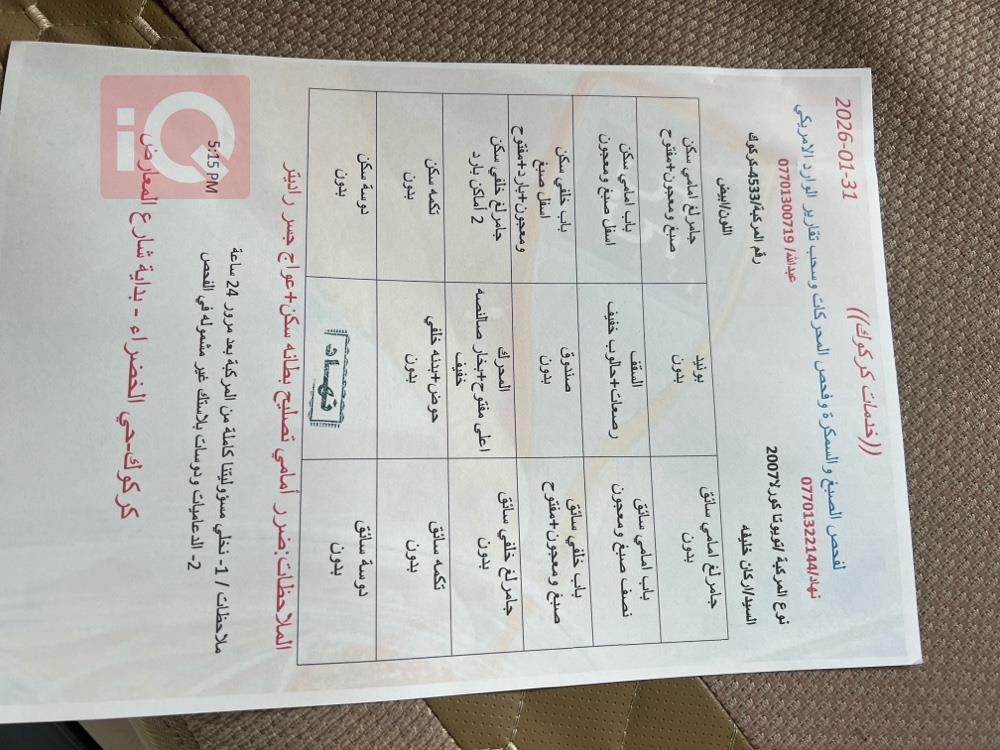 ((خدمات كركوك))
2026-01-31
لفحص الصبغ و السمكرة وفحص المحركات وسحب تقارير الوارد الامريكي
نهاد/07701322144
عبدالله/ 07701300719
نوع المركبة /تويوتا كورلا2007
رقم المركبة/4533-كركوك
السيد/اركان خليفه
اللون/ابيض
جامرلغ امامي سائق
بدون
بونيد
بدون
جامرلغ امامي سكن
صبغ ومعجون+مفتوح
باب امامي سائق
نصف صبغ ومعجون
السقف
رصعات+حالوب خفيف
باب امامي سكن
اسفل صبغ ومعجون
باب خلفي سائق
صبغ ومعجون+مفتوح
صندوق
بدون
باب خلفي سكن
اسفل صبغ
ومعجون+بارد+مفتوح
جامرلغ خلفي سائق
بدون
المحرك
اعلى مفتوح+بخار صالنصه
خفيف
جامرلغ خلفي سكن
2 أماكن بارد
تكمه سائق
بدون
حوض+بدنه خلفي
بدون
تكمه سكن
بدون
دوسة سائق
بدون
نهاد
دوسة سكن
بدون
الملاحظات:ضرر أمامي تصليح بطانه سكن+عواج جسر راديتر
ملاحظات / 1- نخلي مسؤوليتنا كاملة من المركبة بعد مرور 24 ساعة
2- الدعاميات ودوسات بلاستك غير مشموله في الفحص
5:15 PM
كركوك-حي الخضراء - بداية شارع المعارض
iQ